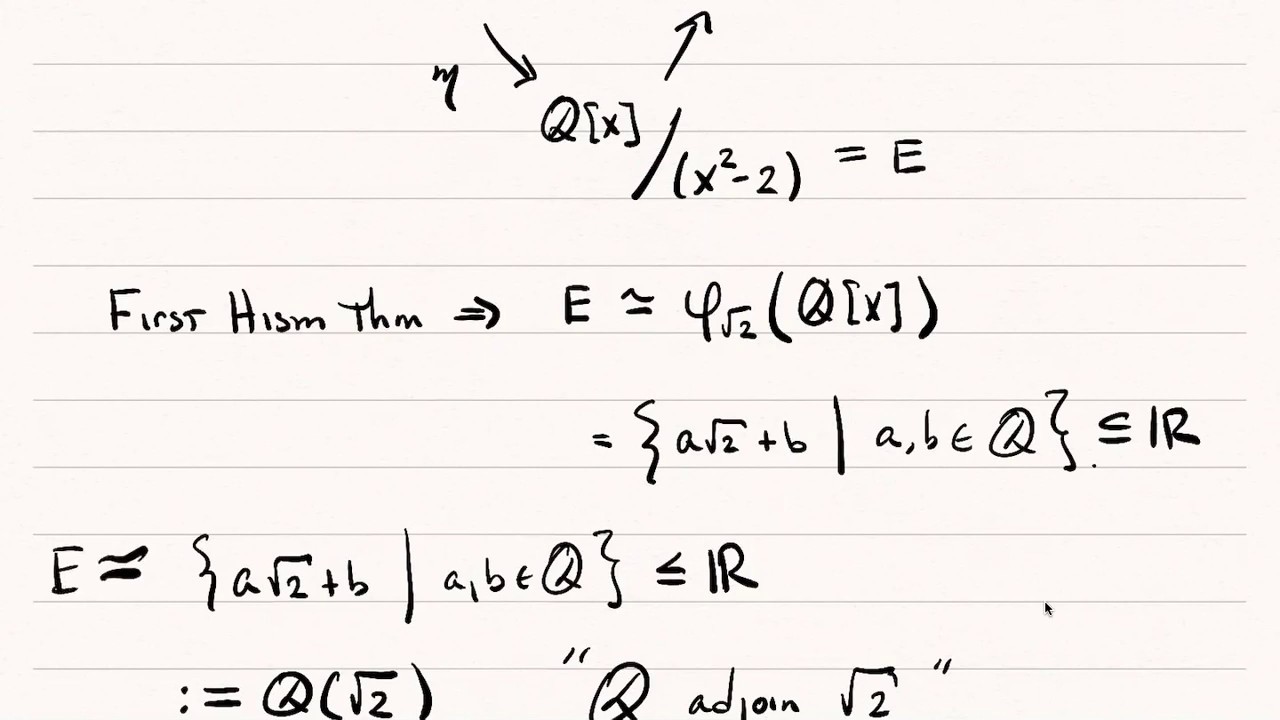 η
Q[x]/(x²-2) = E
First Hism Thm ⇒ E ≃ φ√2(Q[x])
= {a√2+b | a,b ∈ Q} ≤ ℝ
E ≃ {a√2+b | a,b ∈ Q} ≤ ℝ
:= Q(√2) "Q adjoin √2"